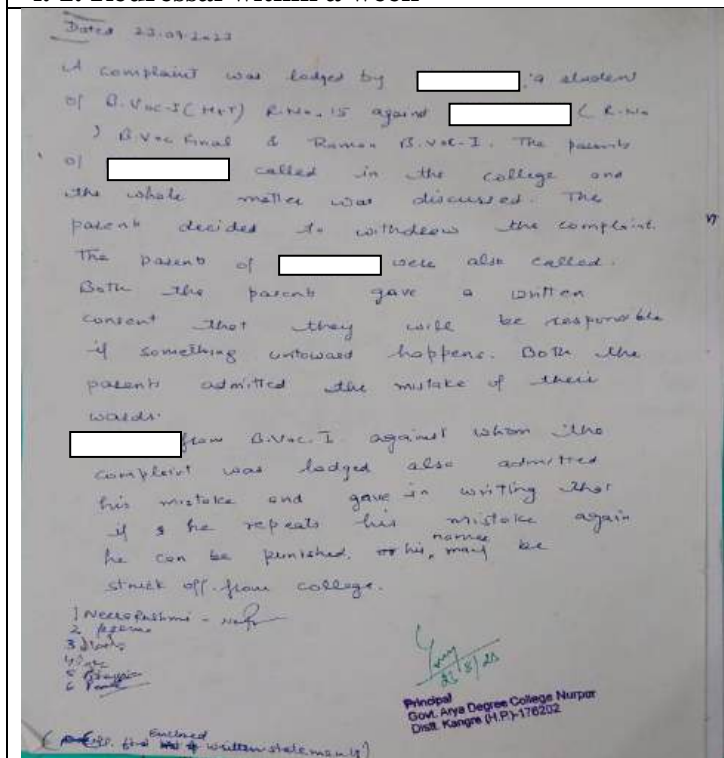 Dated 23.09.2023
A complaint was lodged by a student
of B.Voc-I (H&T) R.No. 15 against ( R.No
) B.Voc Final & Raman B.Voc-I. The parents
of called in the college and
the whole matter was discussed. The
parents decided to withdraw the complaint.
The parents of were also called.
Both the parents gave a written
consent that they will be responsible
if something untoward happens. Both the
parents admitted the mistake of their
wards.
from B.Voc. I. against whom the
complaint was lodged also admitted
his mistake and gave in writing that
if he repeats his mistake again
he can be punished, or his name may be
struck off from college.
1
2
3
4
5
6
Principal
Govt. Arya Degree College Nurpur
Distt. Kangra (H.P.)-176202
Enclosed written statements)